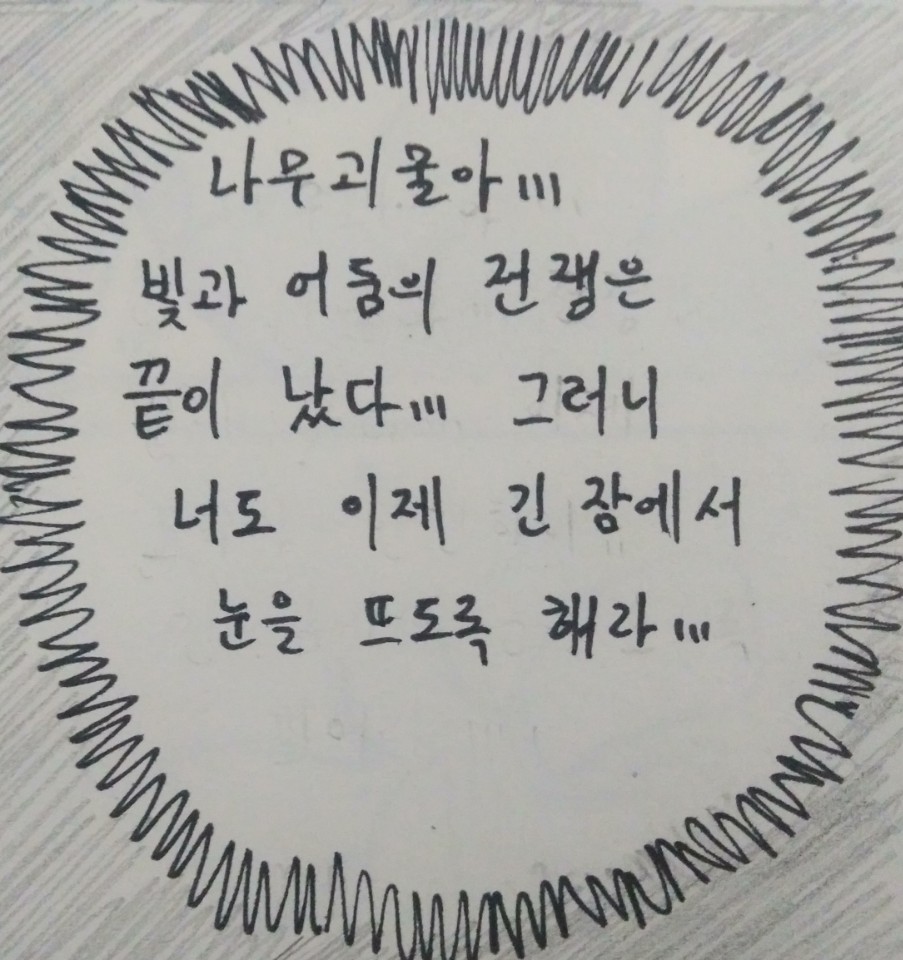 나무괴물아...
빛과 어둠의 전쟁은
끝이 났다... 그러니
너도 이제 긴 잠에서
눈을 뜨도록 해라...